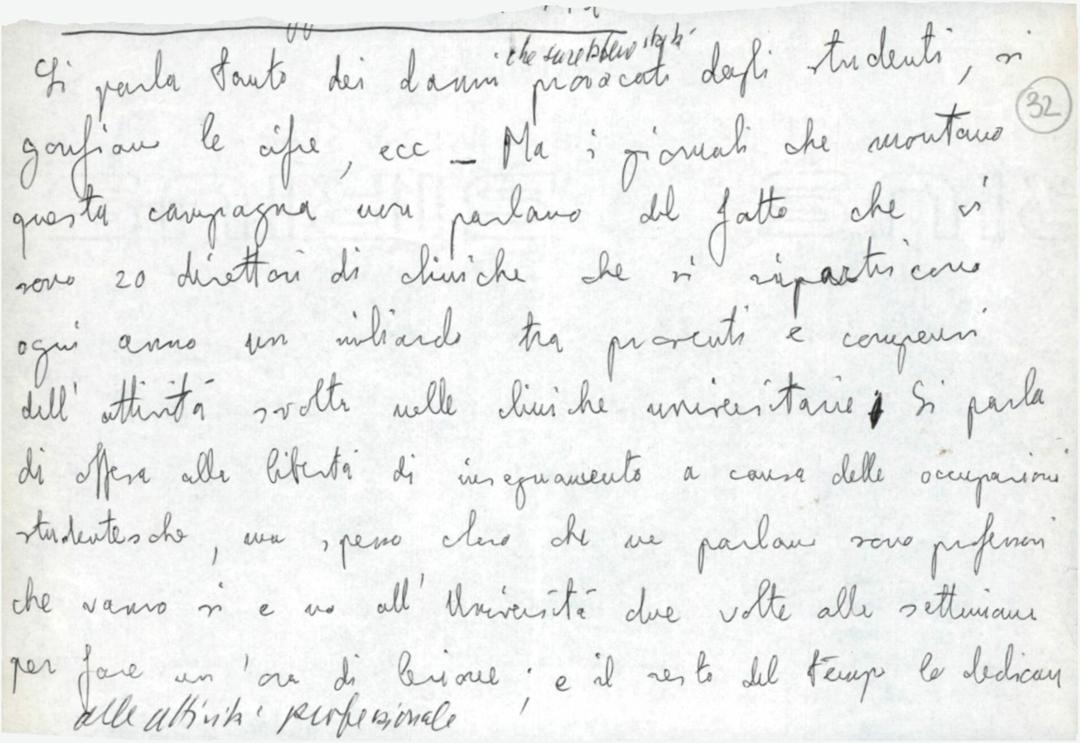 che sarebbero stati
Si parla tanto dei danni provocati dagli studenti, si
32
gonfiano le cifre, ecc _ Ma i giornali che montano
questa campagna non parlano del fatto che vi
sono 20 direttori di cliniche che si ripartiscono
ogni anno un miliardo tra proventi e compensi
dell'attività svolta nelle cliniche universitarie. Si parla
di offesa alla libertà di insegnamento a causa delle occupazioni
studentesche, ma spesso che ne parlano sono professori
che vanno si e no all'Università due volte alla settimana
per fare un'ora di lezione; e il resto del tempo lo dedicano
alle attività professionale